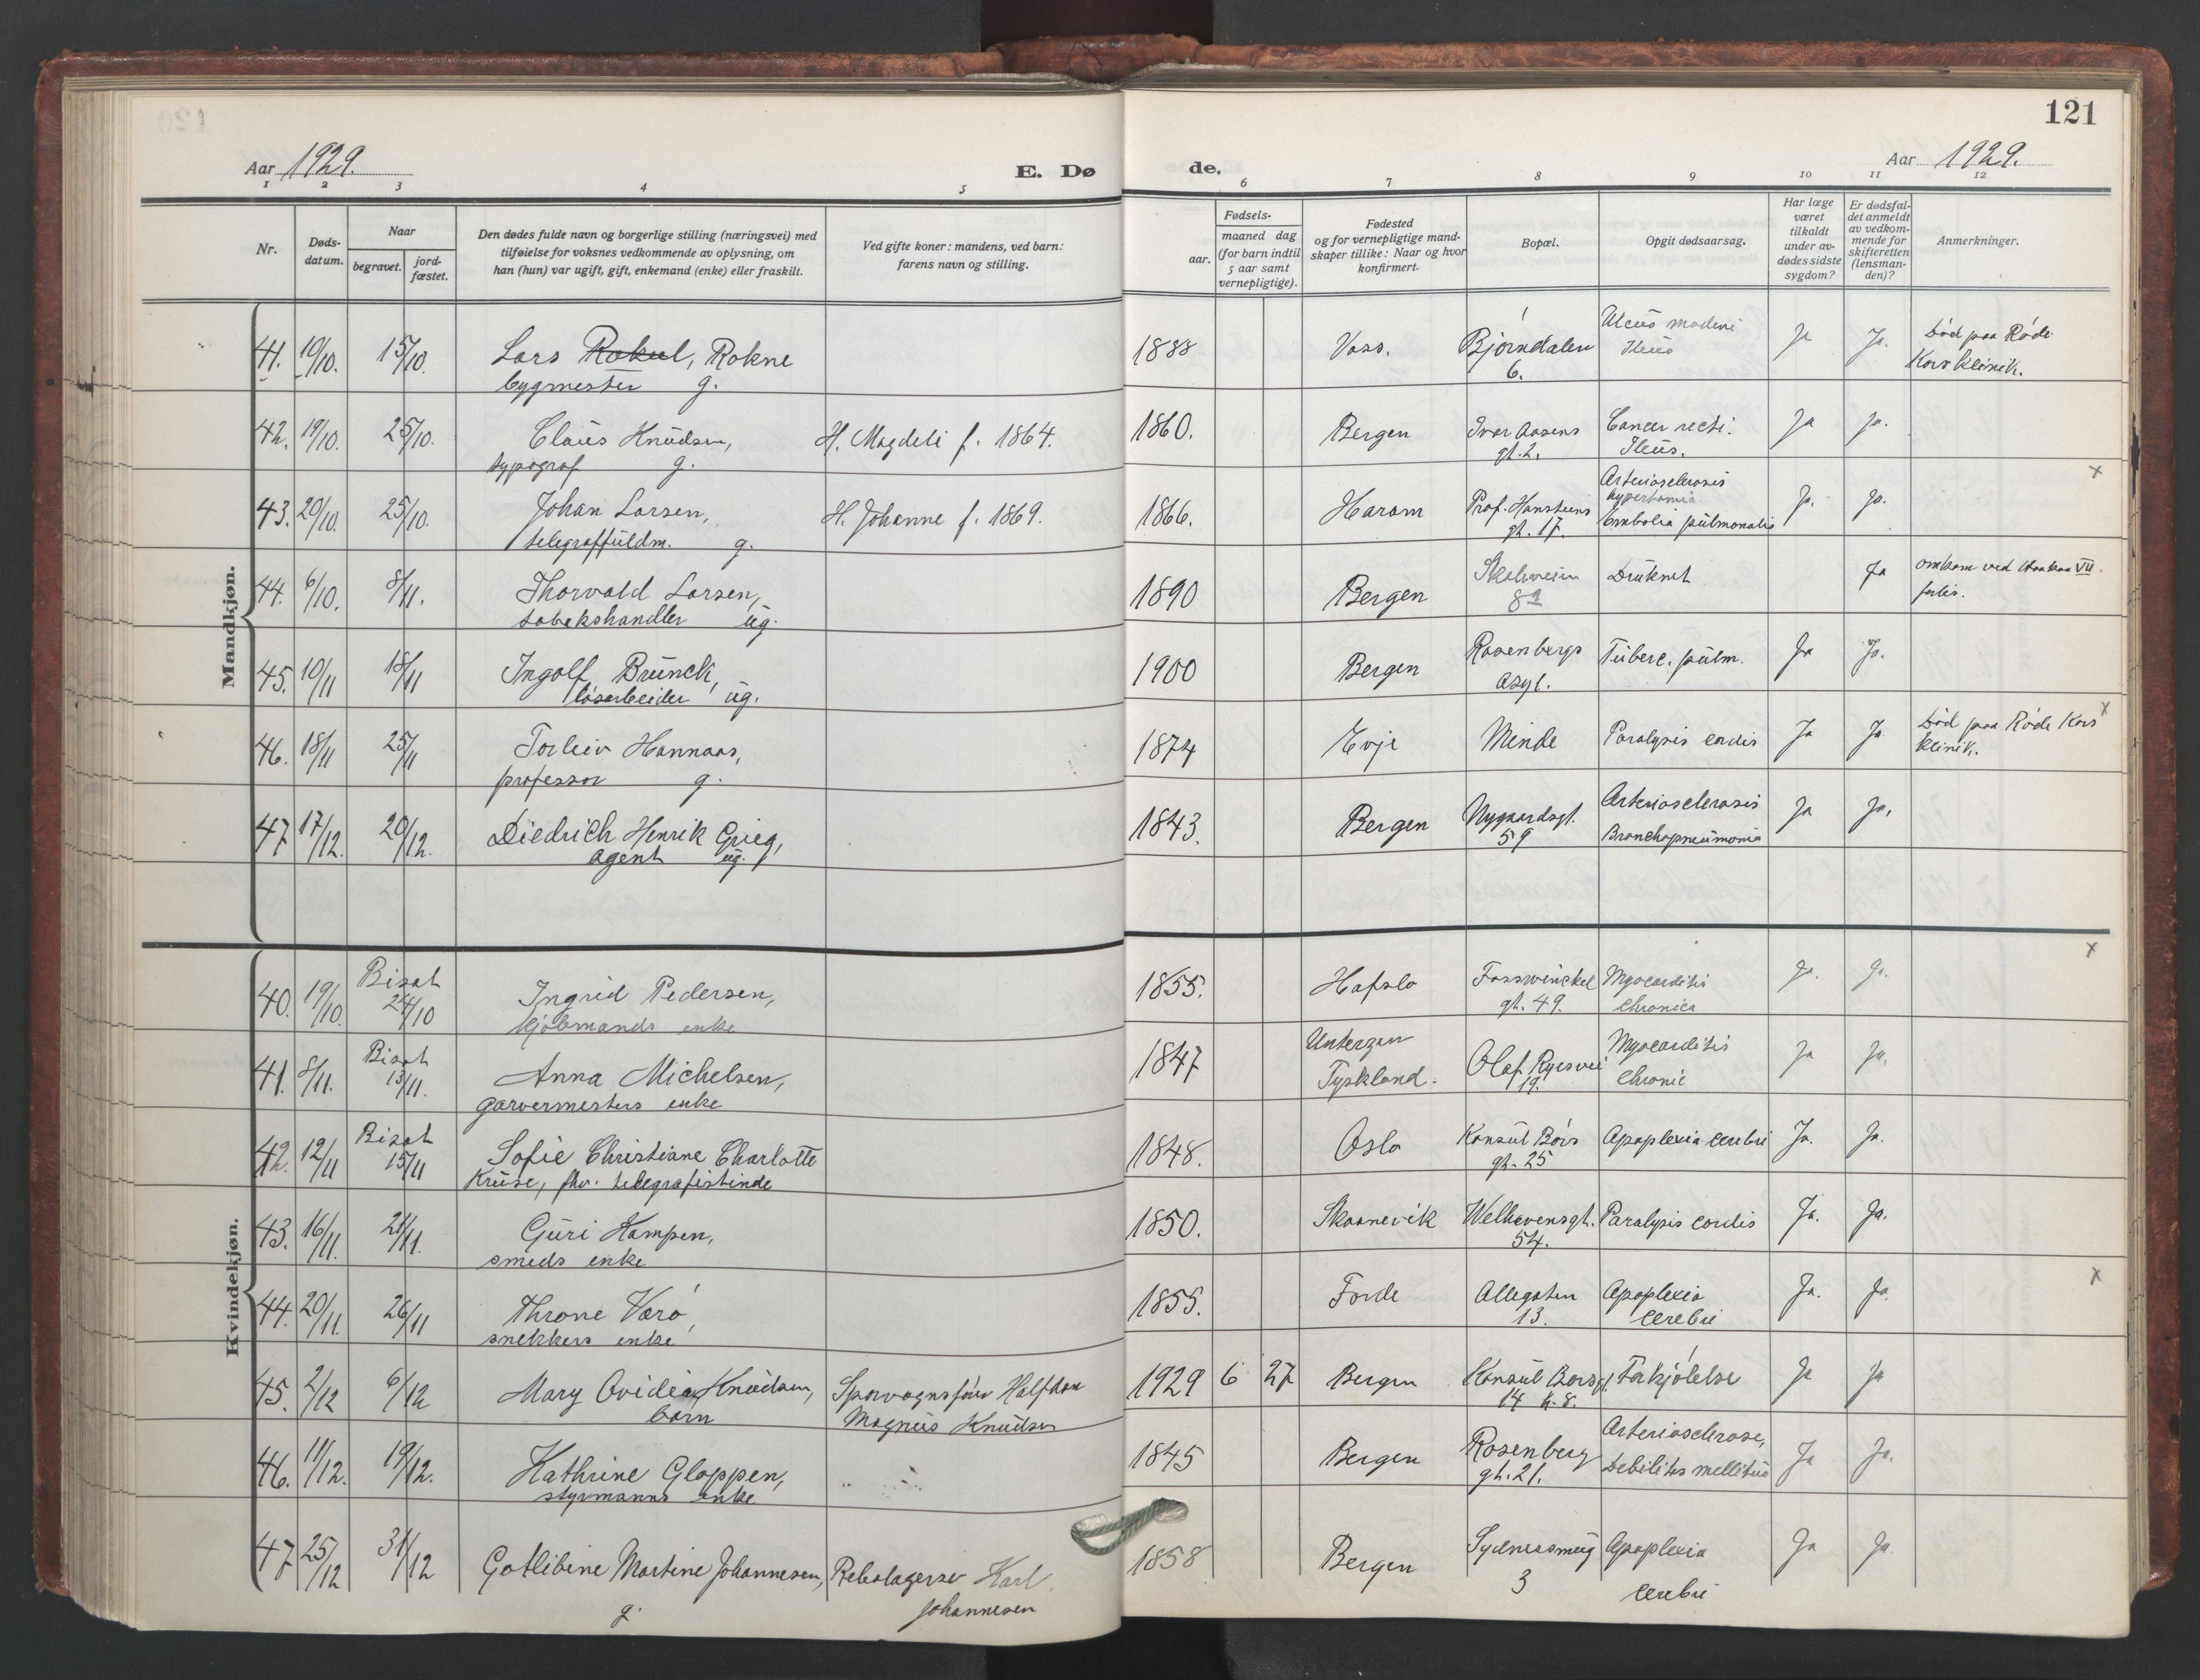 121
Aar 1929.
E. Dø de.
Aar 1929.
1 2 3 4 5 6 7 8 9 10 11 12
Nr.
Døds-
datum.
Naar
begravet.
jord-
fæstet.
Den dødes fulde navn og borgerlige stilling (næringsvei) med
tilføielse for voksnes vedkommende av oplysning, om
han (hun) var ugift, gift, enkemand (enke) eller fraskilt.
Ved gifte koner: mandens, ved barn:
farens navn og stilling.
Fødsels-
aar.
maaned dag
(for barn indtil
5 aar samt
vernepligtige).
Fødested
og for vernepligtige mand-
skaper tillike: Naar og hvor
konfirmert.
Bopæl.
Opgit dødsaarsag.
Har læge
været
tilkaldt
under av-
dødes sidste
sygdom?
Er dødsfal-
det anmeldt
av vedkom-
mende for
skifteretten
(lensman-
den)?
Anmerkninger.
Mandkjøn.
41. 10/10. 15/10. Lars Rokul, Rokne 1888 Voss. Bjørndalen Ja Ja. Død paa Røde
bygmester g. 6. Ileus Kors klinik.
42. 19/10. 25/10. Claus Knudsen, H. Magdeli f. 1864. 1860. Bergen Ivar Aasens Cancer recti. Ja Ja.
typograf g. gt. 2. Ileus.
43. 20/10. 25/10. Johan Larsen, H. Johanne f. 1869. 1866. Haram Prof. Hansteens Arteriosclerosis Ja. Ja. x
telegraffuldm. g. gt. 17. Embolia pulmonalis
44. 6/10. 8/11. Thorvald Larsen, 1890 Bergen Druknet Ja omkom ved Haakon VII
tobakshandler ug. forlis.
45. 10/11 18/11 Ingolf Brunck, 1900 Bergen Rosenbergs Tuberc. pulm. Ja Ja.
løsarbeider ug. asyl.
46. 18/11 25/11 Torleiv Hannaas, 1874 Evje Minde Paralysis cordis Ja Ja Død paa Røde Kors x
professor g. klinik.
47 17/12. 20/12. Diedrich Henrik Grieg, 1843. Bergen Nygaardsgt. Arteriosclerosis Ja Ja.
agent ug. 59 Bronchopneumonia
Kvindekjøn.
40. 19/10. Bisat 24/10 Ingrid Pedersen, 1855. Hafslo Fosswinckel Myocarditis Ja. Ja. x
kjøbmands enke gt. 49. chronica
41. 8/11. Bisat 13/11. Anna Michelsen, 1847 Tyskland. Olaf Ryesvei Myocarditis Ja Ja.
garvermesters enke 19. chronic
42. 12/11 Bisat 15/11 Sofie Christiane Charlotte 1848. Oslo Konsul Børs Apoplexia cerebri Ja. Ja.
Kruse, fhv. telegrafistinde gt. 25
43. 16/11. 21/11. Guri Kampen, 1850. Skaanevik Welhavensgt. Paralysis cordis Ja. Ja.
smeds enke 54.
44. 20/11. 26/11 Throne Værø, 1855. Førde Allegaten Apoplexia Ja. Ja. x
snekkers enke 13. cerebri
45. 2/12 6/12 Mary Ovidia Knudsen, Sporvognsfører Halfdan 1929 6 27 Bergen Konsul Børsgt. Forkjølelse Ja Ja
barn Magnus Knudsen 14 k. 8.
46. 11/12. 19/12. Kathrine Gloppen, 1845 Bergen Rosenberg Arteriosclerose, Ja Ja.
styrmanns enke gt. 21. Debilitis mellitus
47 25/12 31/12 Gotlibine Martine Johannesen, Rebslagersv Karl 1858 Bergen Sydnessmug Apoplexia Ja Ja
g. Johannesen 3 cerebri